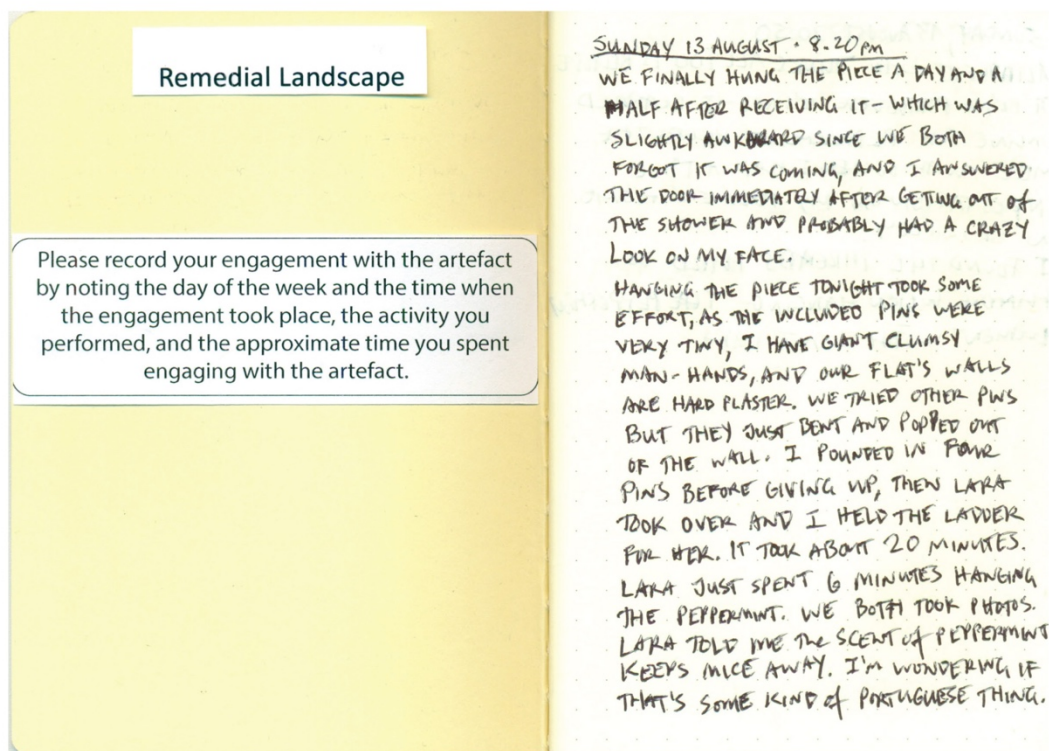 Remedial Landscape
Please record your engagement with the artefact
by noting the day of the week and the time when
the engagement took place, the activity you
performed, and the approximate time you spent
engaging with the artefact.
SUNDAY 13 AUGUST · 8.20PM
WE FINALLY HUNG THE PIECE A DAY AND A
HALF AFTER RECEIVING IT – WHICH WAS
SLIGHTLY AWKWARD SINCE WE BOTH
FORGOT IT WAS COMING, AND I ANSWERED
THE DOOR IMMEDIATELY AFTER GETTING OUT OF
THE SHOWER AND PROBABLY HAD A CRAZY
LOOK ON MY FACE.
HANGING THE PIECE TONIGHT TOOK SOME
EFFORT, AS THE INCLUDED PINS WERE
VERY TINY, I HAVE GIANT CLUMSY
MAN-HANDS, AND OUR FLAT'S WALLS
ARE HARD PLASTER. WE TRIED OTHER PINS
BUT THEY JUST BENT AND POPPED OUT
OF THE WALL. I POUNDED IN FOUR
PINS BEFORE GIVING UP, THEN LARA
TOOK OVER AND I HELD THE LADDER
FOR HER. IT TOOK ABOUT 20 MINUTES.
LARA JUST SPENT 6 MINUTES HANGING
THE PEPPERMINT. WE BOTH TOOK PHOTOS.
LARA TOLD ME THE SCENT OF PEPPERMINT
KEEPS MICE AWAY. I'M WONDERING IF
THAT'S SOME KIND OF PORTUGUESE THING.